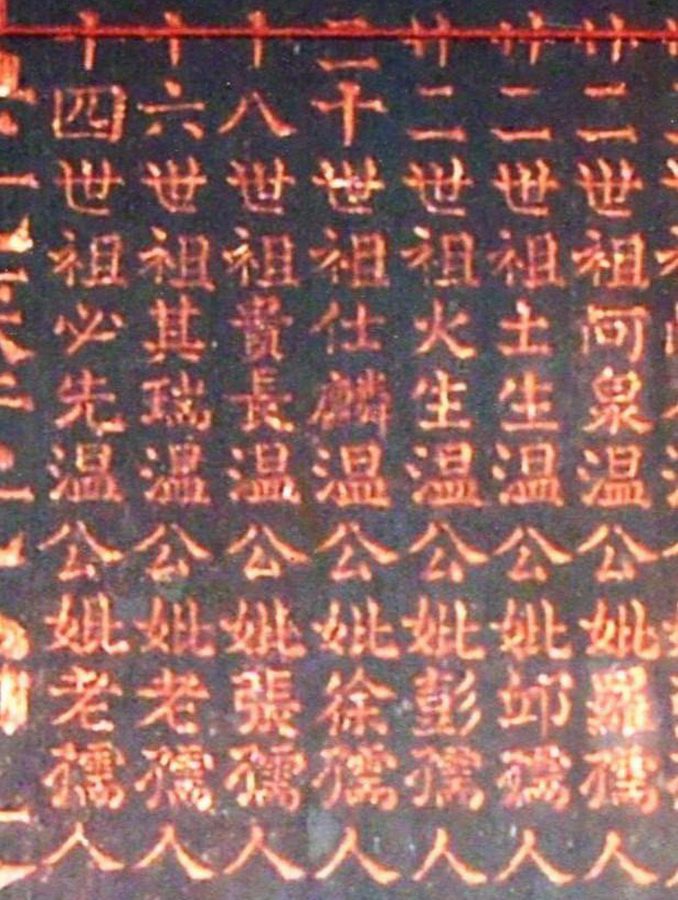 廿二世祖阿泉温公妣羅孺人
廿二世祖土生温公妣邱孺人
廿二世祖火生温公妣彭孺人
二十世祖仕麟温公妣徐孺人
十八世祖貴長温公妣張孺人
十六世祖其瑞温公妣老孺人
十四世祖必先温公妣老孺人